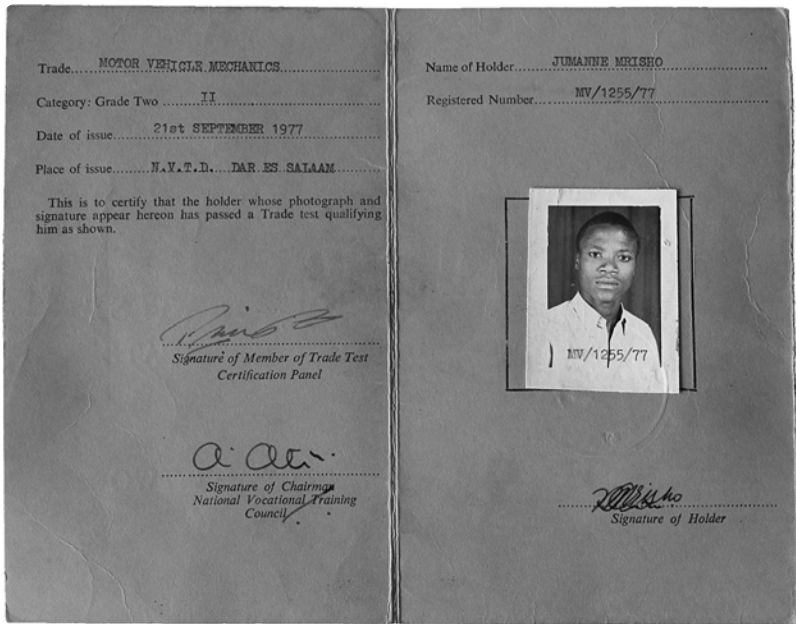 Trade....MOTOR VEHICLE MECHANICS
Category: Grade Two ........II
Date of issue.......21st SEPTEMBER 1977
Place of issue.......N.V.T.D. DAR ES SALAAM
This is to certify that the holder whose photograph and
signature appear hereon has passed a Trade test qualifying
him as shown.
Signature of Member of Trade Test
Certification Panel
Signature of Chairman
National Vocational Training
Council
Name of Holder.......JUMANNE MRISHO
Registered Number.......MV/1255/77
MV/1255/77
Mrisho
Signature of Holder